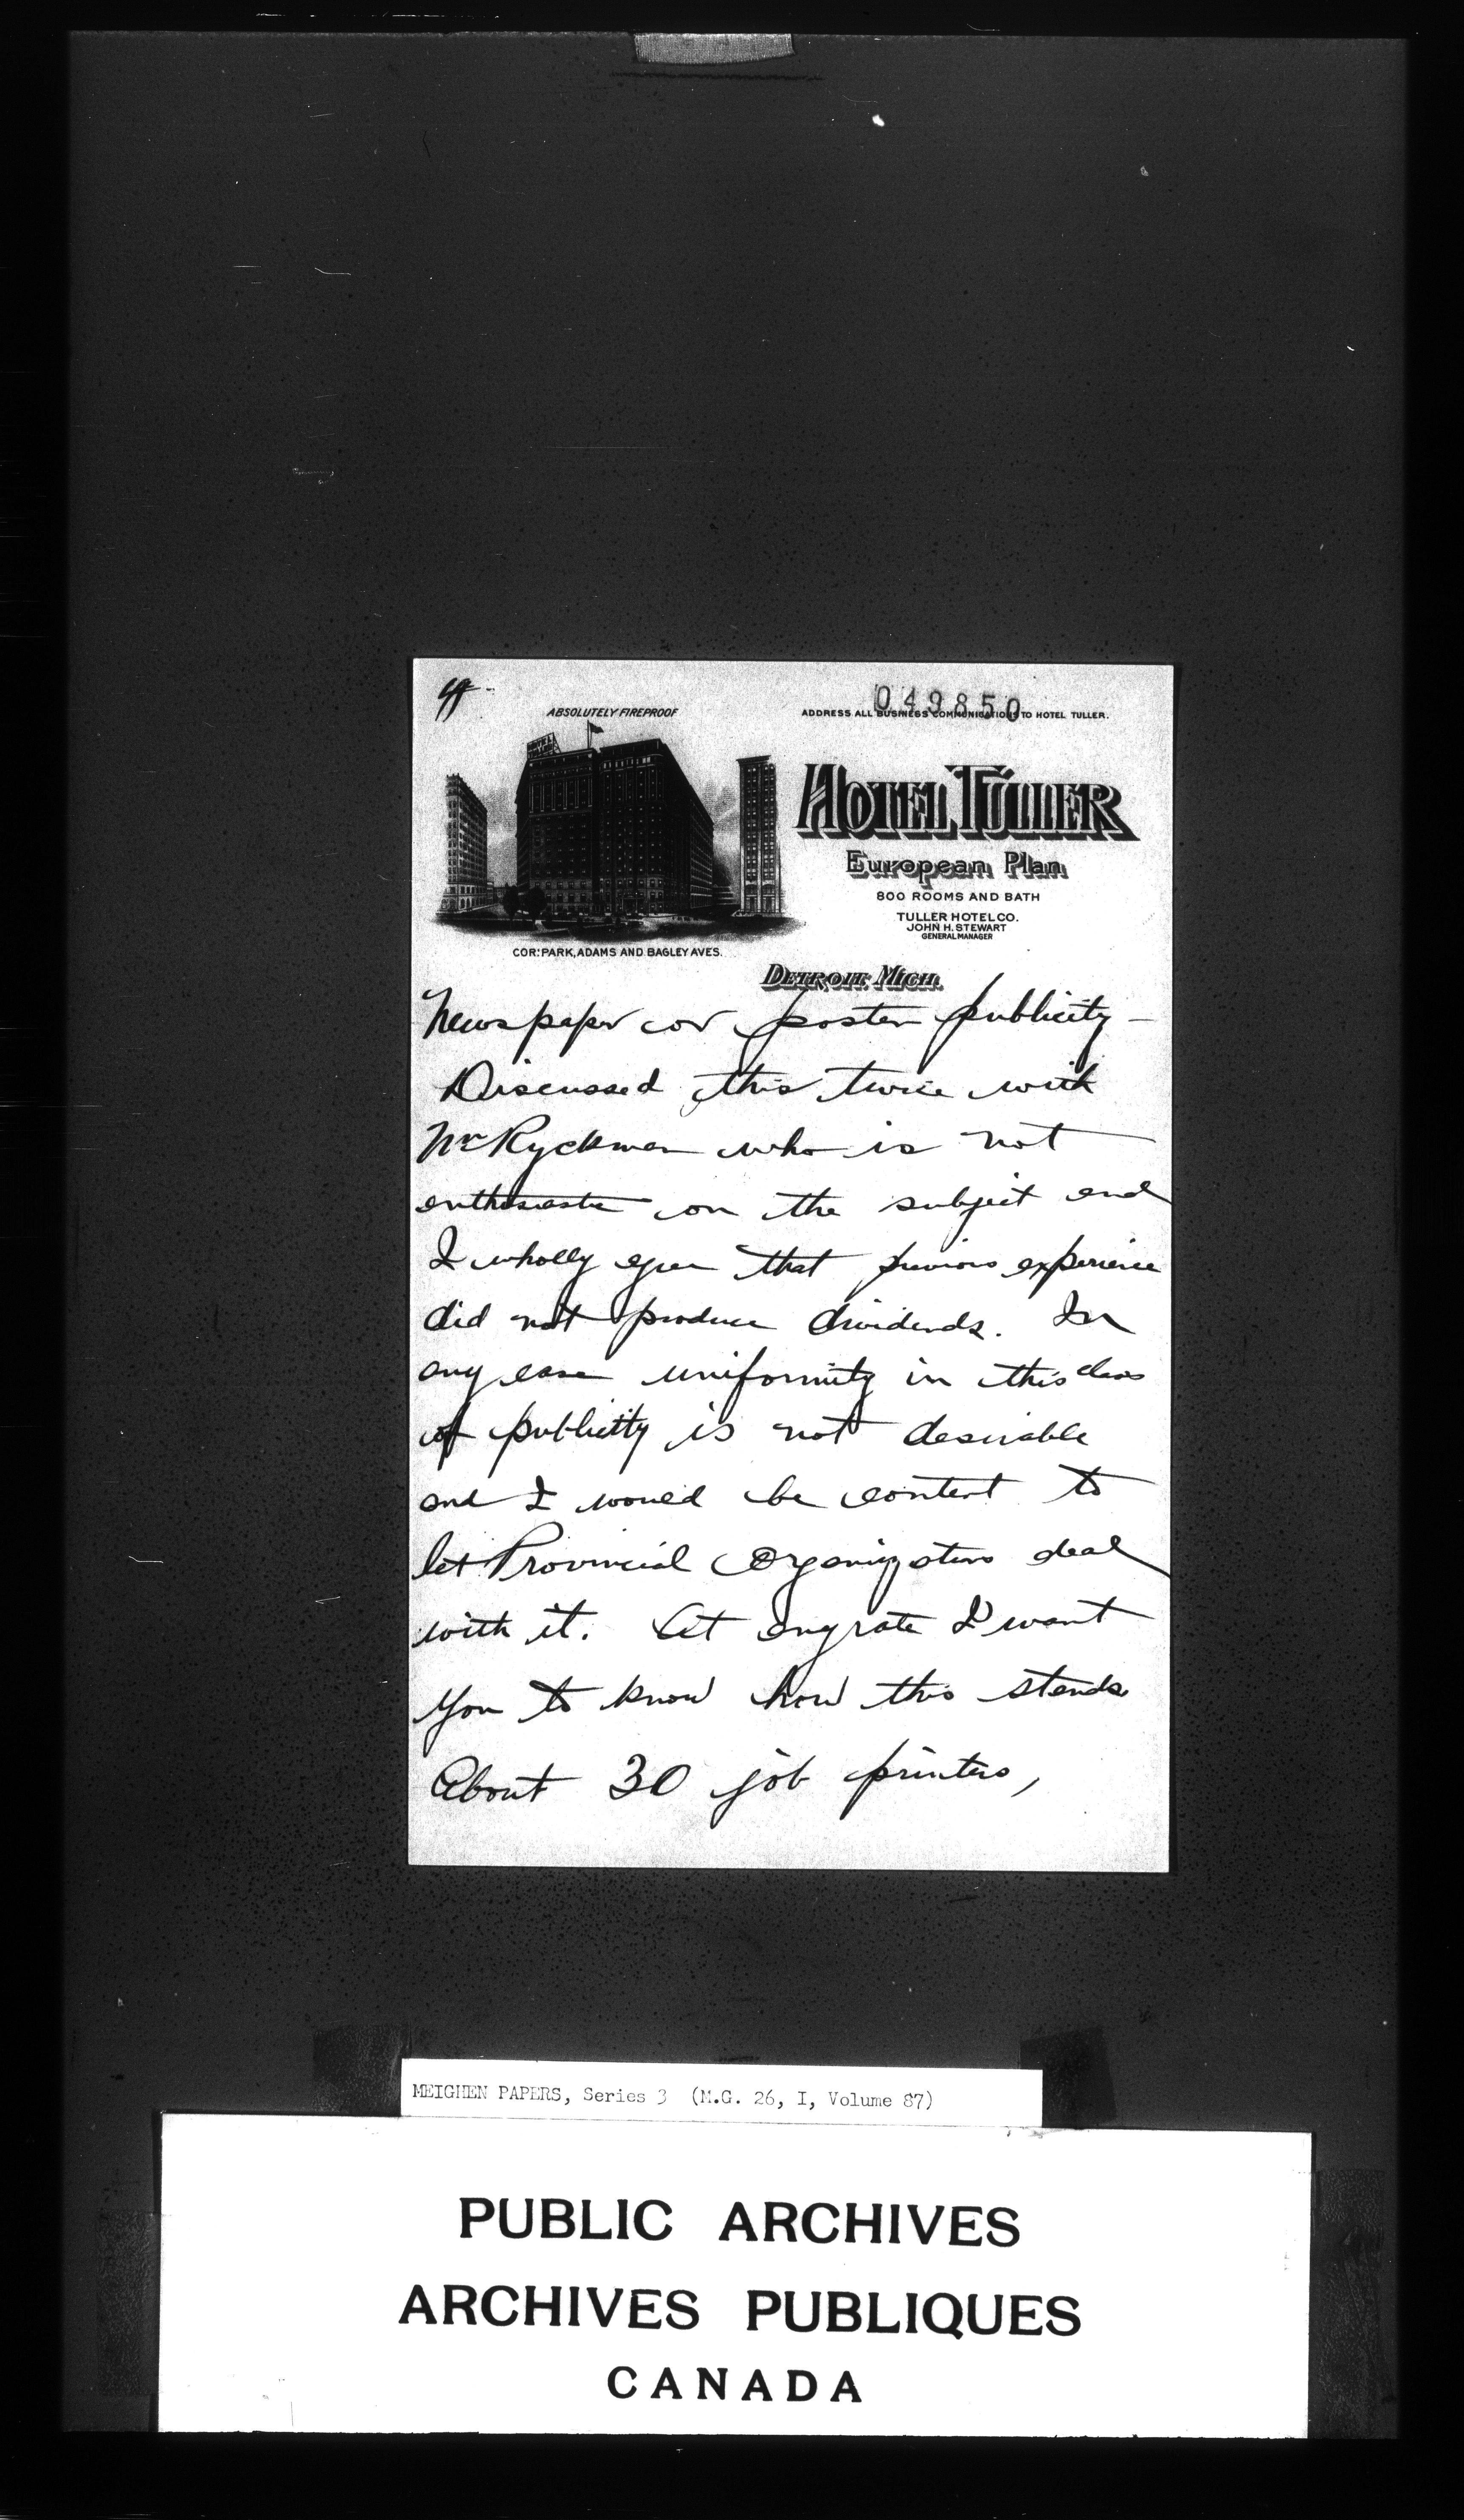 049850
ABSOLUTELY FIREPROOF
ADDRESS ALL BUSINESS COMMUNICATIONS TO HOTEL TULLER.
HOTEL TULLER
European Plan
800 ROOMS AND BATH
TULLER HOTEL CO.
JOHN H. STEWART
GENERAL MANAGER
COR. PARK, ADAMS AND BAGLEY AVES.
DETROIT, MICH.
Newspaper or poster publicity –
Discussed this twice with
Mr Ryckman who is not
enthusiastic on the subject and
I wholly agree that previous experience
did not produce dividends. In
any case uniformity in this class
of publicity is not desirable
and I would be content to
let Provincial Organizations deal
with it. At any rate I want
you to know how this stands
About 30 job printers,
MEIGHEN PAPERS, Series 3 (M.G. 26, I, Volume 87)
PUBLIC ARCHIVES
ARCHIVES PUBLIQUES
CANADA